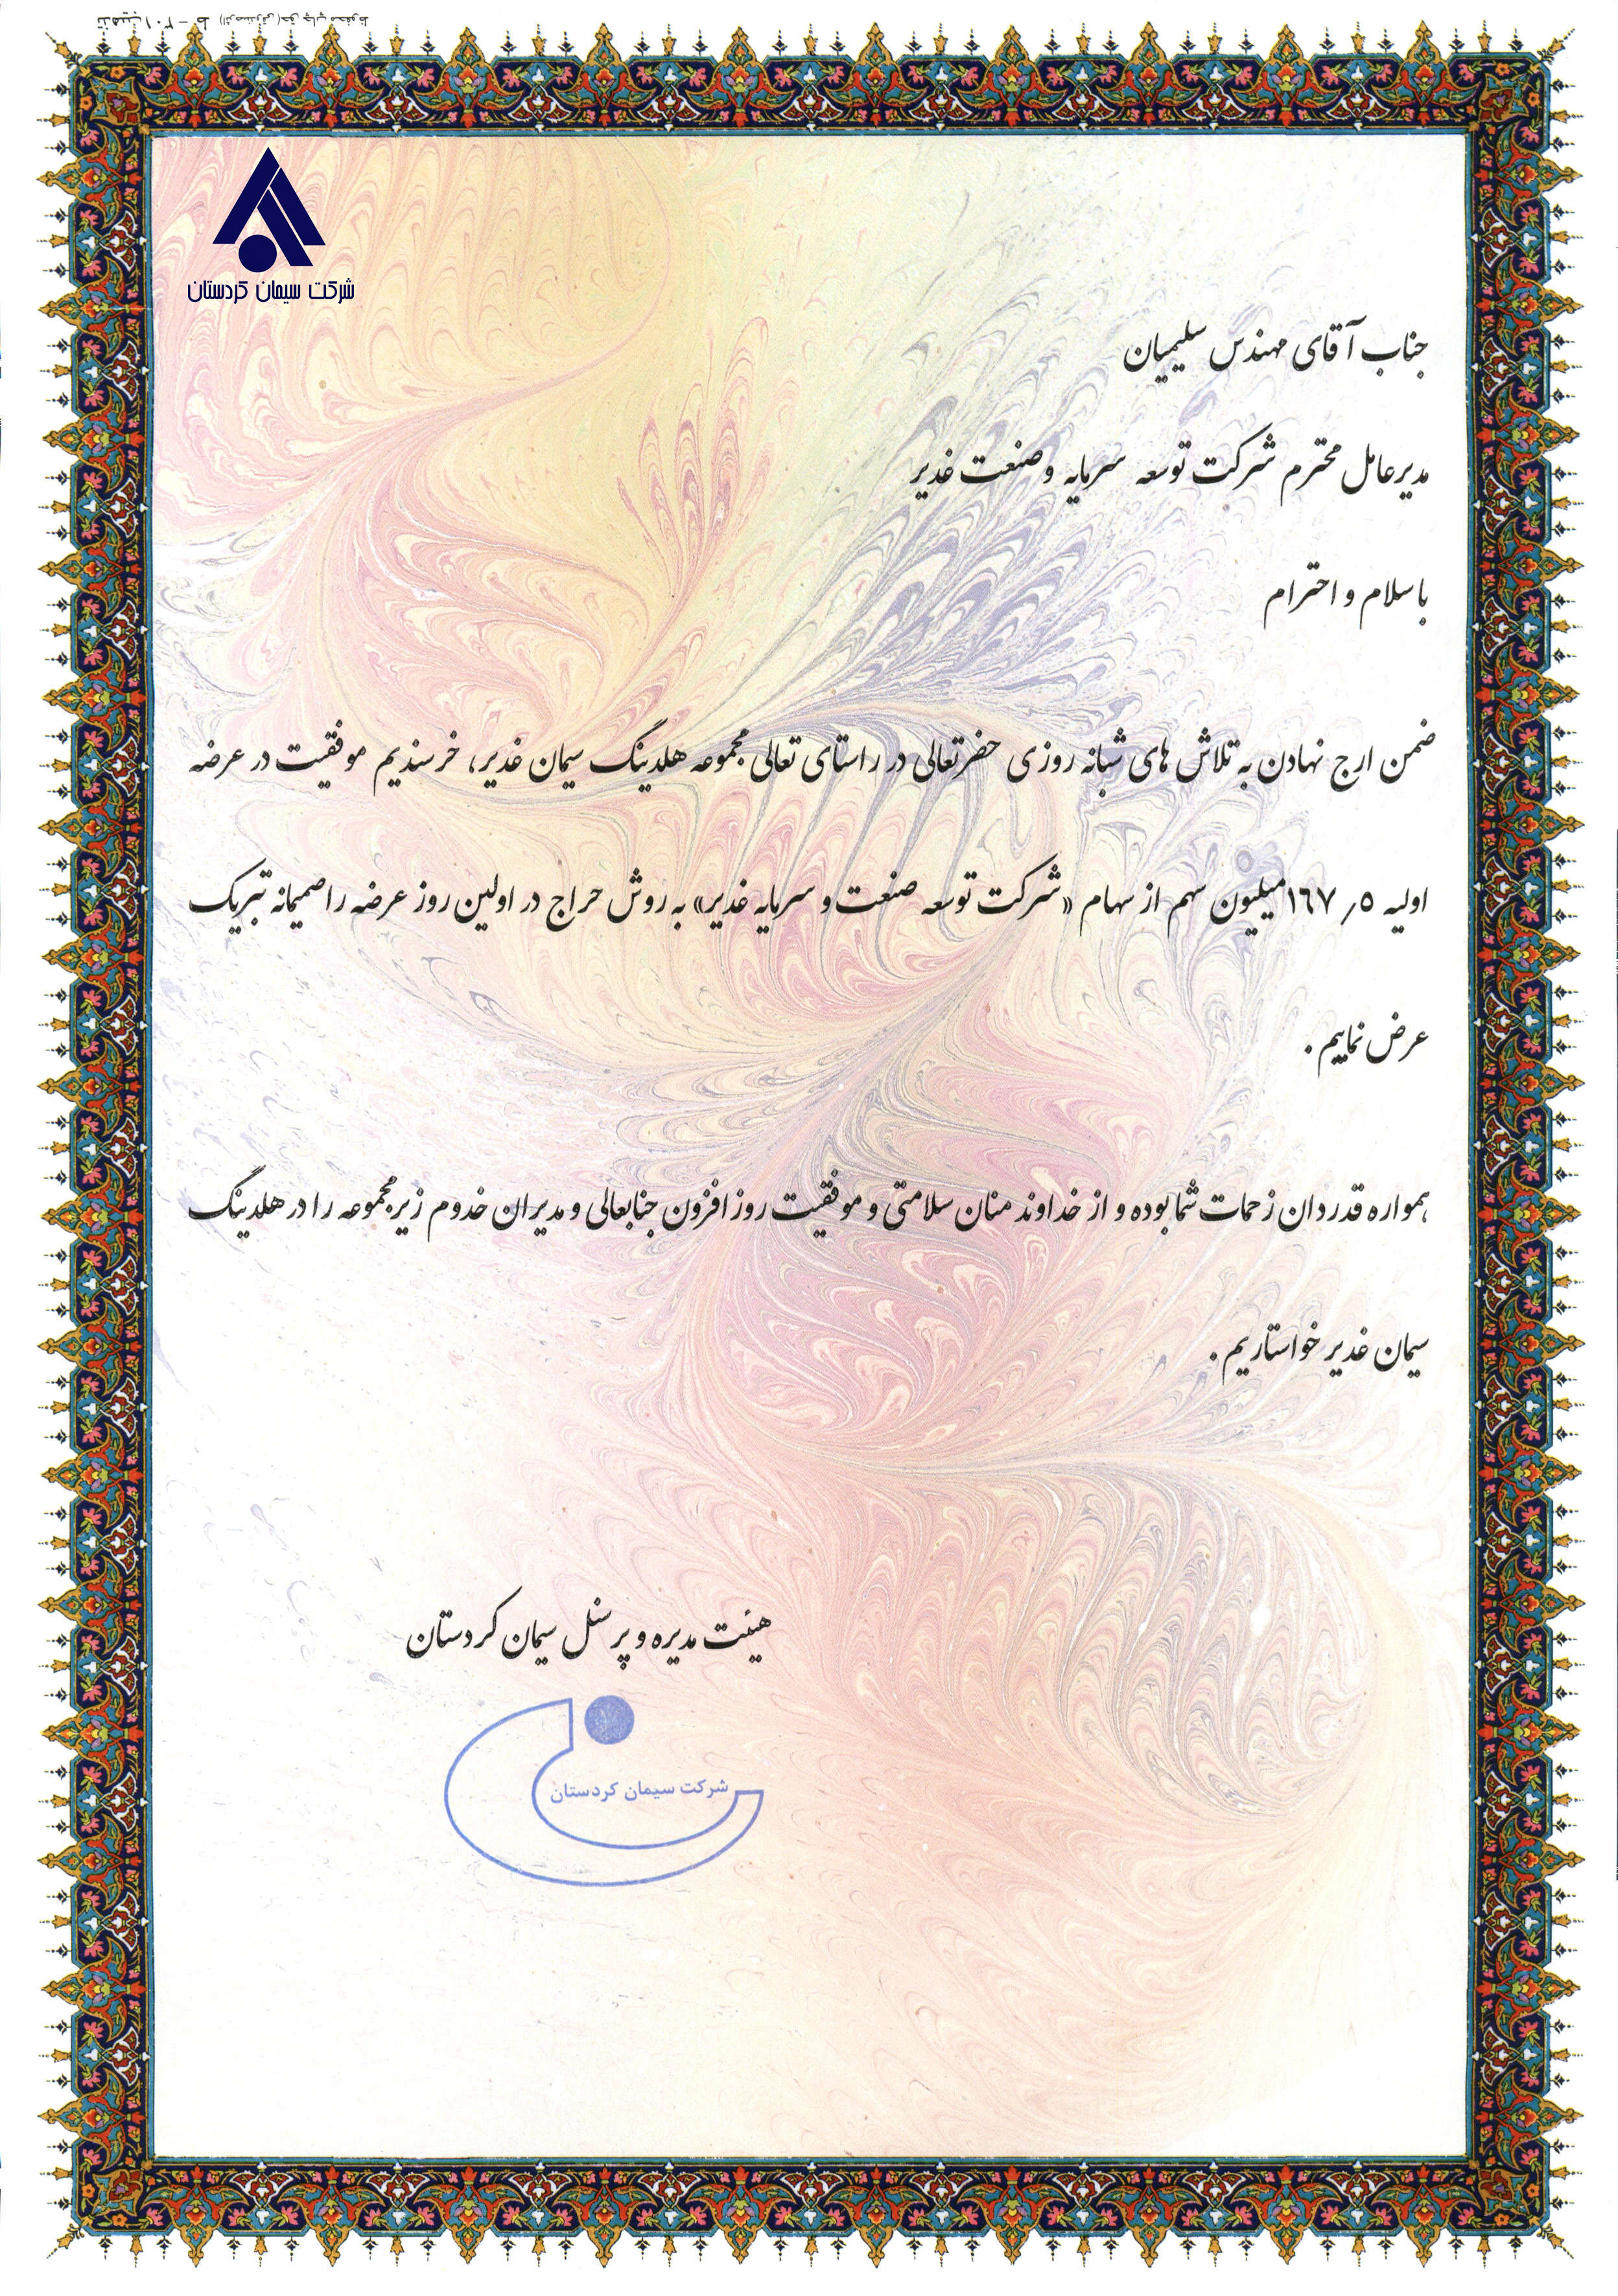 شرکت سیمان کردستان
جناب آقای مهندس سلیمیان
مدیرعامل محترم شرکت توسعه سرمایه و صنعت غدیر
باسلام و احترام
ضمن ارج نهادن به تلاش های شبانه روزی حضرتعالی در راستای تعالی مجموعه هلدینگ سیمان غدیر، خرسندیم موفقیت در عرضه
اولیه ۱۶۷٫۵ میلیون سهم از سهام «شرکت توسعه صنعت و سرمایه غدیر» به روش حراج در اولین روز عرضه را صمیمانه تبریک
عرض نماییم.
همواره قدردان زحمات شما بوده و از خداوند منان سلامتی و موفقیت روز افزون جنابعالی و مدیران خدوم زیرمجموعه را در هلدینگ
سیمان غدیر خواستاریم.
هیئت مدیره و پرسنل سیمان کردستان
شرکت سیمان کردستان